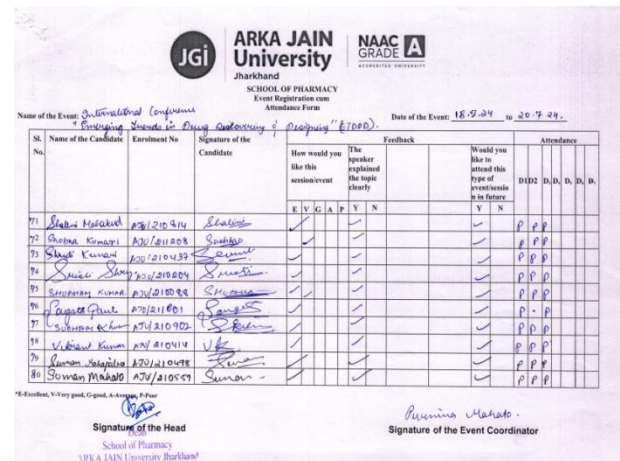 JGi
ARKA JAIN
University
Jharkhand
NAAC
GRADE A
ACCREDITED UNIVERSITY
SCHOOL OF PHARMACY
Event Registration cum
Attendance Form
Name of the Event: International Conference Date of the Event: 18.9.24 to 20.9.24.
"Emerging Trends in Drug Discovering & Designing" (ETDDD).
Sl. No. Name of the Candidate Enrolment No Signature of the Candidate Feedback Attendance
How would you like this session/event The speaker explained the topic clearly Would you like to attend this type of event/session in future D1 D2 D, D, D, D, D,
E V G A P Y N Y N
71 Shalini Mahakud AJU/210914 Shalini P P P
72 Shobha Kumari AJU/211208 P P P
73 Kumari AJU/210437 P P P
74 AJU/210204 P P P
75 SHUBHAM KUMAR AJU/210098 P P P
76 Paul AJU/211801 P . P
77 SUBHAM AJU/210902 P P P
78 Vikrant Kumar AJU/210414 VK P P P
79 Suman Mahapatra AJU/210498 Suman P P P
80 Suman Mahato AJU/210559 Suman P P P
*E-Excellent, V-Very good, G-good, A-Average, P-Poor
Signature of the Head
Dean
School of Pharmacy
ARKA JAIN University Jharkhand
Purnima Mahato.
Signature of the Event Coordinator